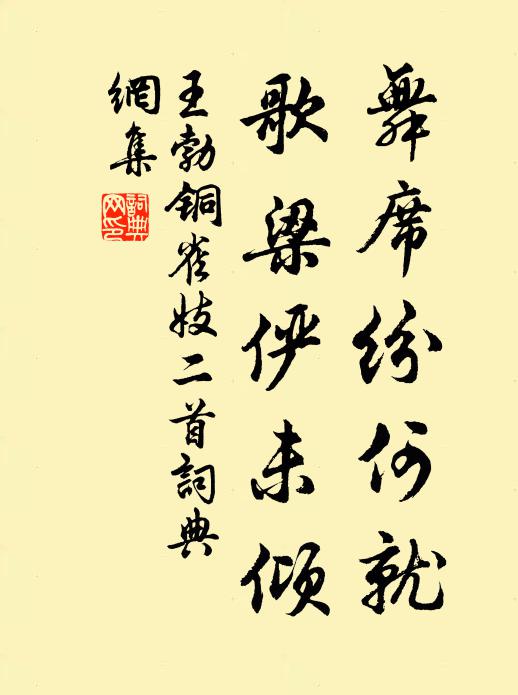 舞席紛何就
歌梁俨未傾
王勃銅雀妓二首詞典
網集
詞典
网印